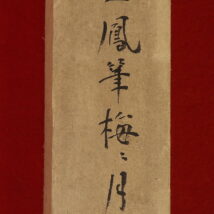 鳳筆梅〻月